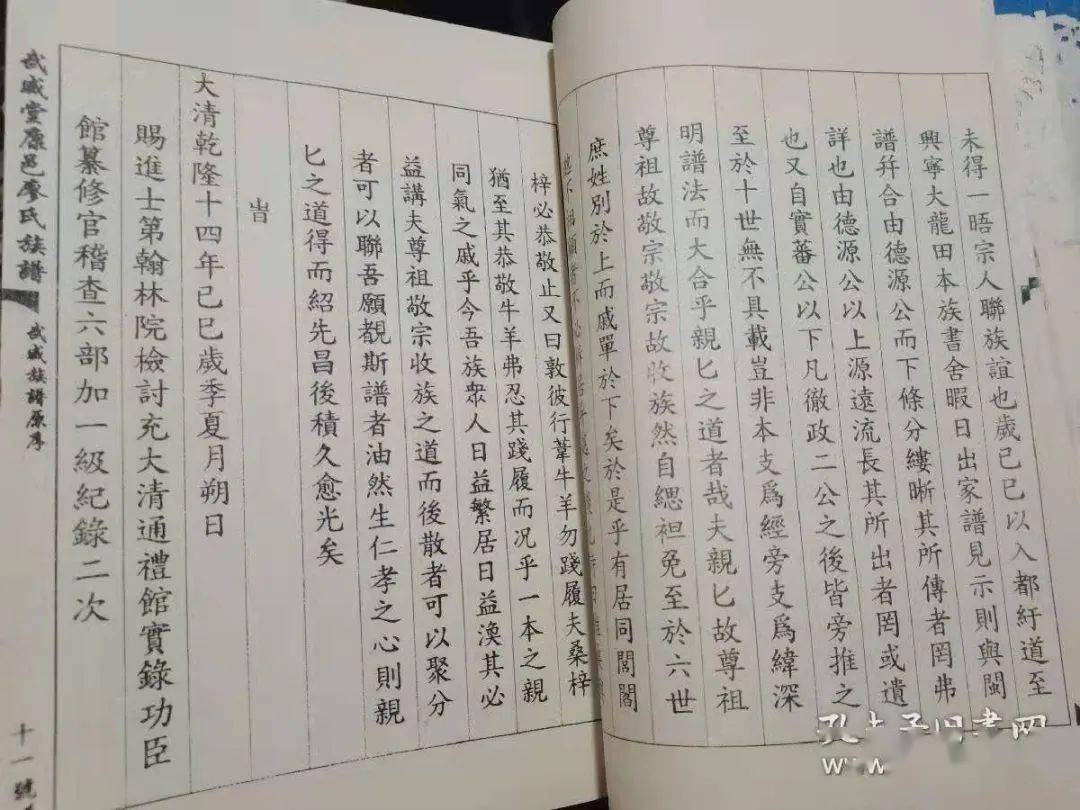 未得一晤宗人聯族誼也歲己巳以入都紆道至
興寧大龍田本族書舍暇日出家譜見示則與閩
譜幷合由德源公而下條分縷晰其所傳者罔弗
詳也由德源公以上源遠流長其所出者罔或遺
也又自實蕃公以下凡徹政二公之後皆旁推之
至於十世無不具載豈非本支爲經旁支爲緯深
明譜法而大合乎親匕之道者哉夫親匕故尊祖
尊祖故敬宗敬宗故收族然自緦袒免至於六世
庶姓別於上而戚單於下矣於是乎有居同閭閻
梓必恭敬止又曰敦彼行葦牛羊勿踐履夫桑梓
猶至其恭敬牛羊弗忍其踐履而况乎一本之親
同氣之戚乎今吾族衆人日益繁居日益渙其必
益講夫尊祖敬宗收族之道而後散者可以聚分
者可以聯吾願覩斯譜者油然生仁孝之心則親
匕之道得而紹先昌後積久愈光矣
旹
大清乾隆十四年己巳歲季夏月朔日
賜進士第翰林院檢討充大清通禮館實錄功臣
館纂修官稽查六部加一級紀錄二次
武威堂康邑廖氏族譜
武威族譜原序
十一號
孔夫子旧书网